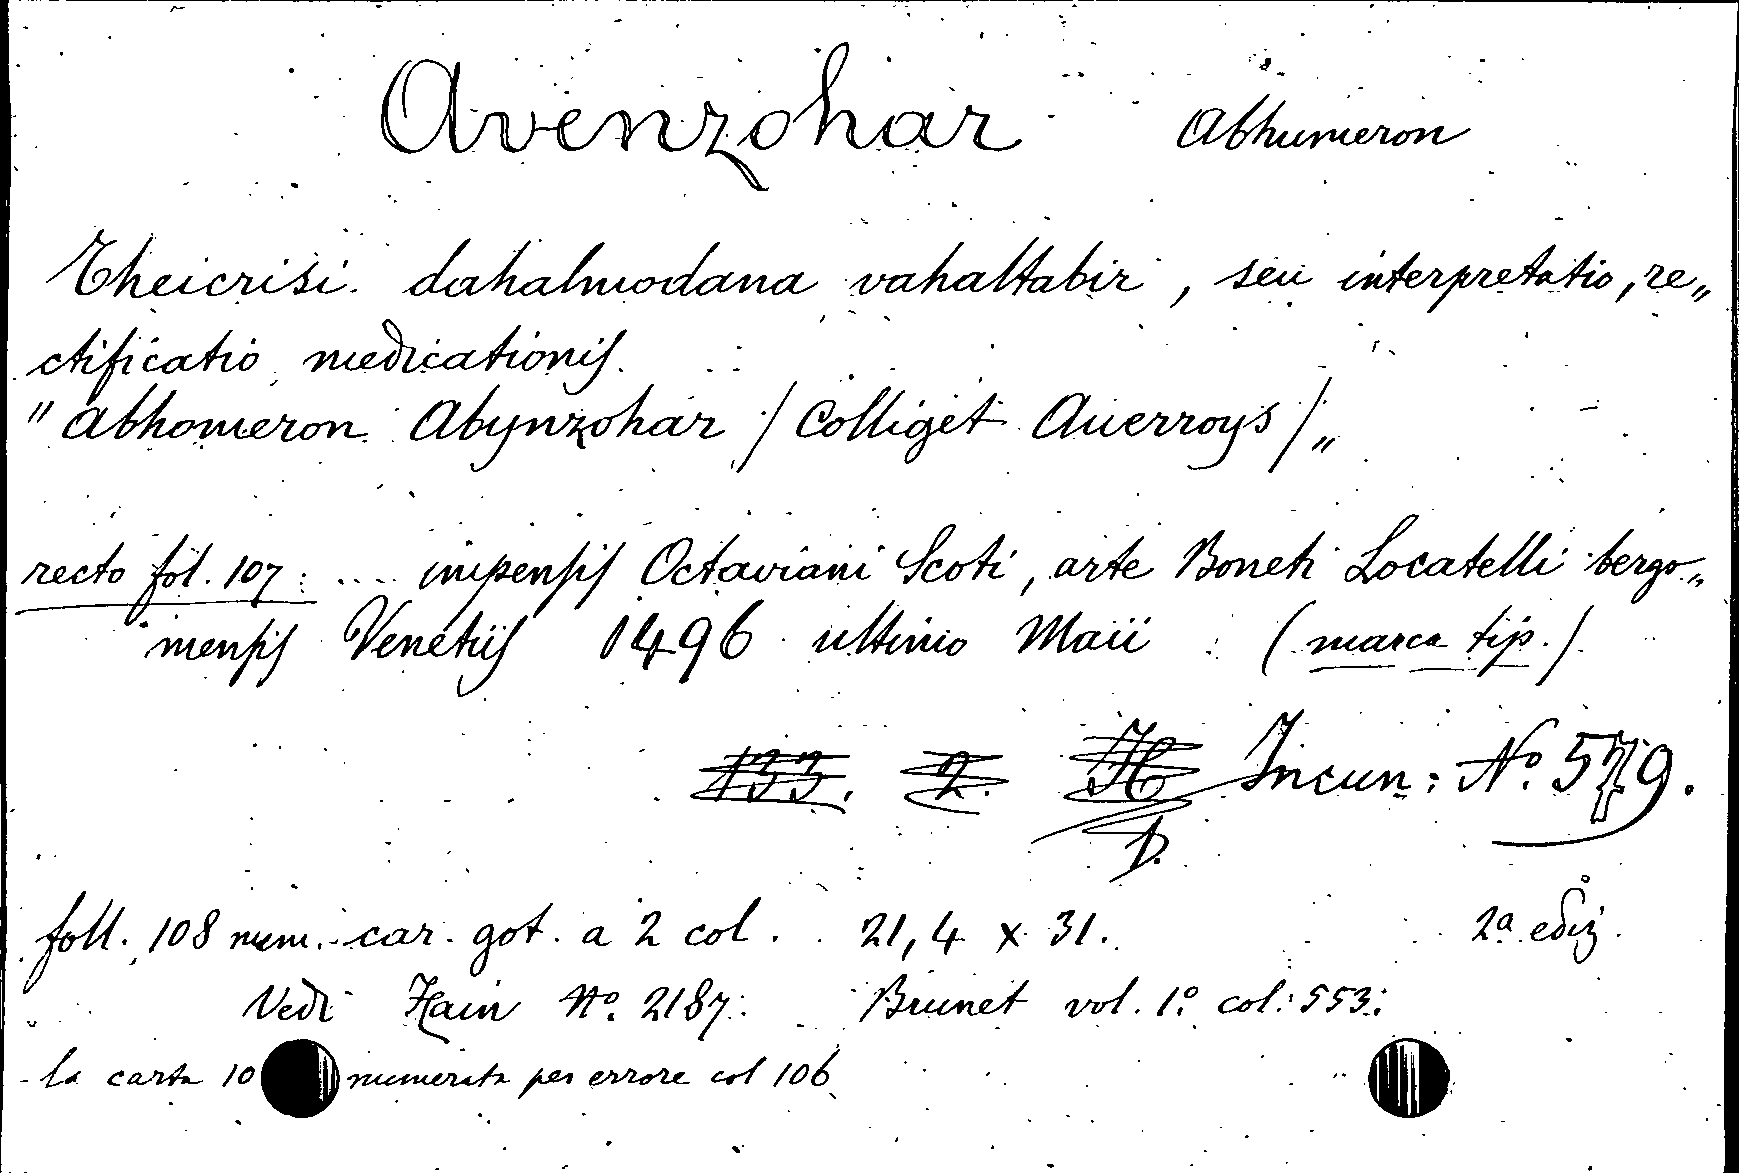 Avenzohar Abhumeron
Theicrisi dahalmodana vahaltabir, seu interpretatio, re„
ctificatio medicationis.
" Abhomeron Abynzohar / Colliget Auerroys /„
recto fol. 107: .... impensis Octaviani Scoti, arte Boneti Locatelli bergo„
mensis Venetiis 1496 ultimo Maii (marca tip.)
133. 2. H Incun: Nº. 579.
D.
foll. 108 num. car. got. a 2 col. 21,4 x 31. 2ª ediz.
Vedi Hain Nº. 2187. Brunet vol. 1º col: 553.
la carta 10 numerata per errore col 106